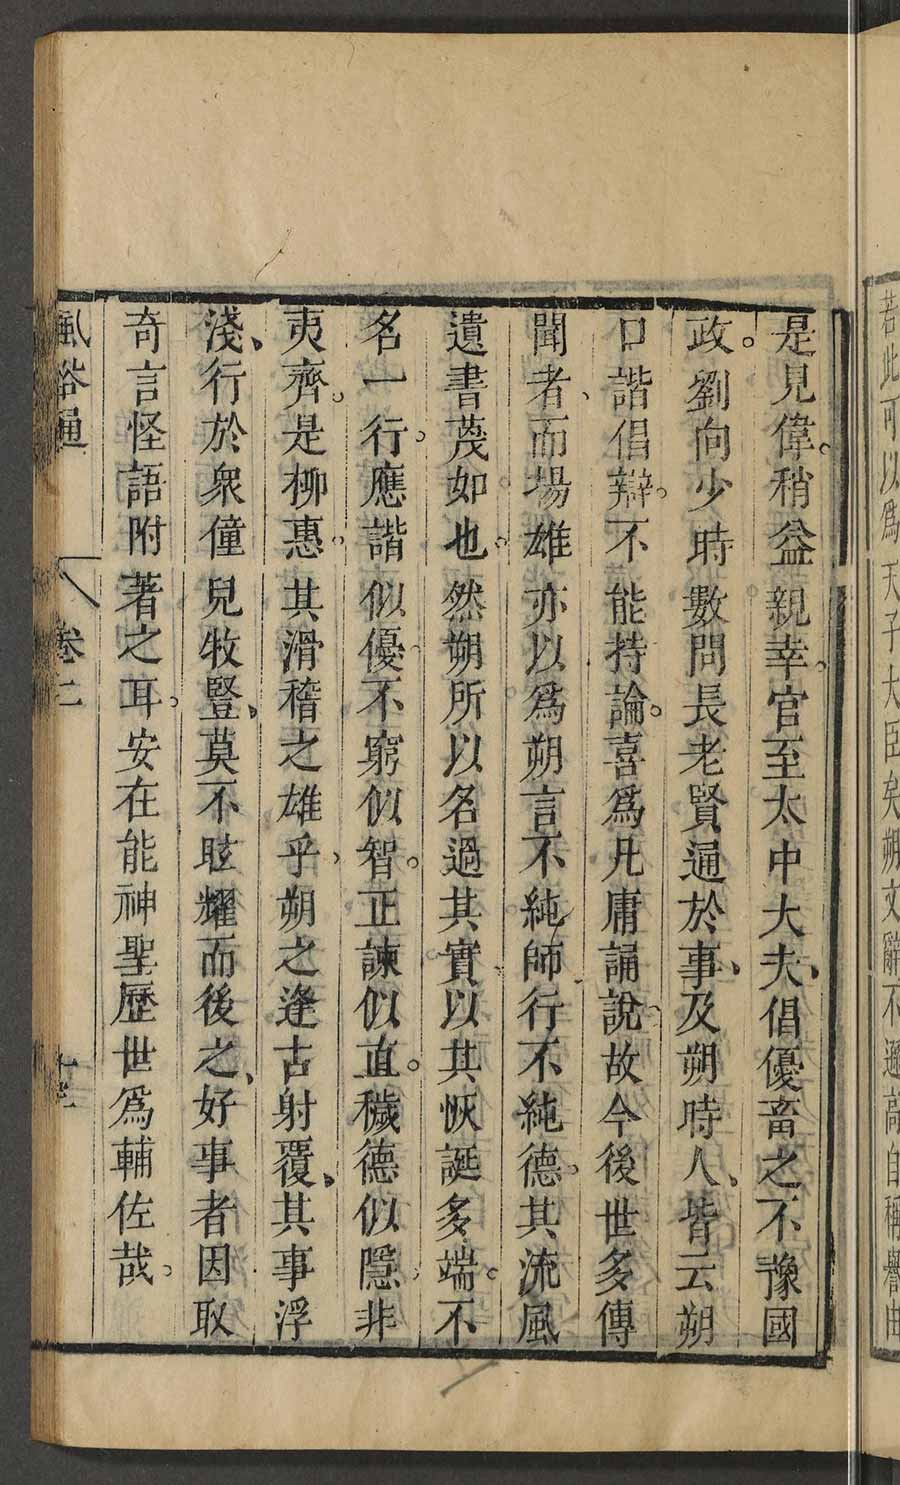 若此可以爲天子大臣矣朔文辭不遜高自稱譽由
是見偉。稍益親幸。官至太中大夫、倡優畜之不豫國
政。劉向少時數問長老賢通於事、及朔時人、皆云朔
口諧倡辯。不能持論。喜爲凡庸誦說。故令後世多傳
聞者、而場雄亦以爲朔言不純師行不純德。其流風
遺書蔑如也。然朔所以名過其實、以其恢誕多端。不
名一行。應諧似優。不窮似智。正諫似直。穢德似隱。非
夷齊。是柳惠。其滑稽之雄乎、朔之逢古射覆、其事浮
淺、行於衆僮兒牧豎、莫不眩耀而後之、好事者因取
奇言怪語附著之耳。安在能神聖歷世爲輔佐哉。
風俗通 卷二